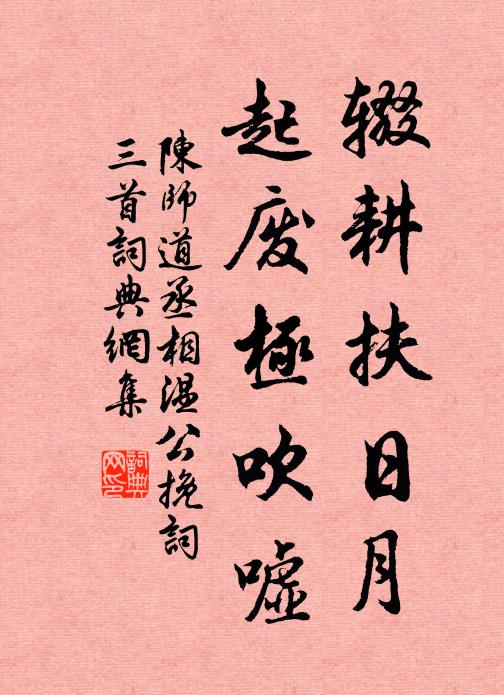 辍耕扶日月
起废極吹嘘
陳師道丞相温公挽詞
三首詞典網集
詞典网印